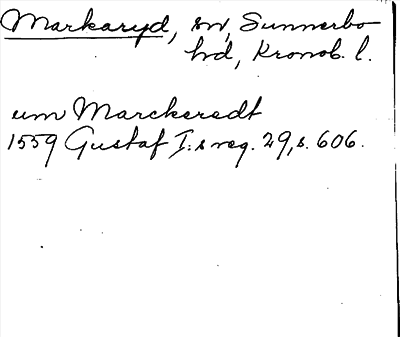 Markaryd, sn, Sunnerbo
hd, Kronob. l.
um Marckeredt
1559 Gustaf I:s reg. 29, s. 606.